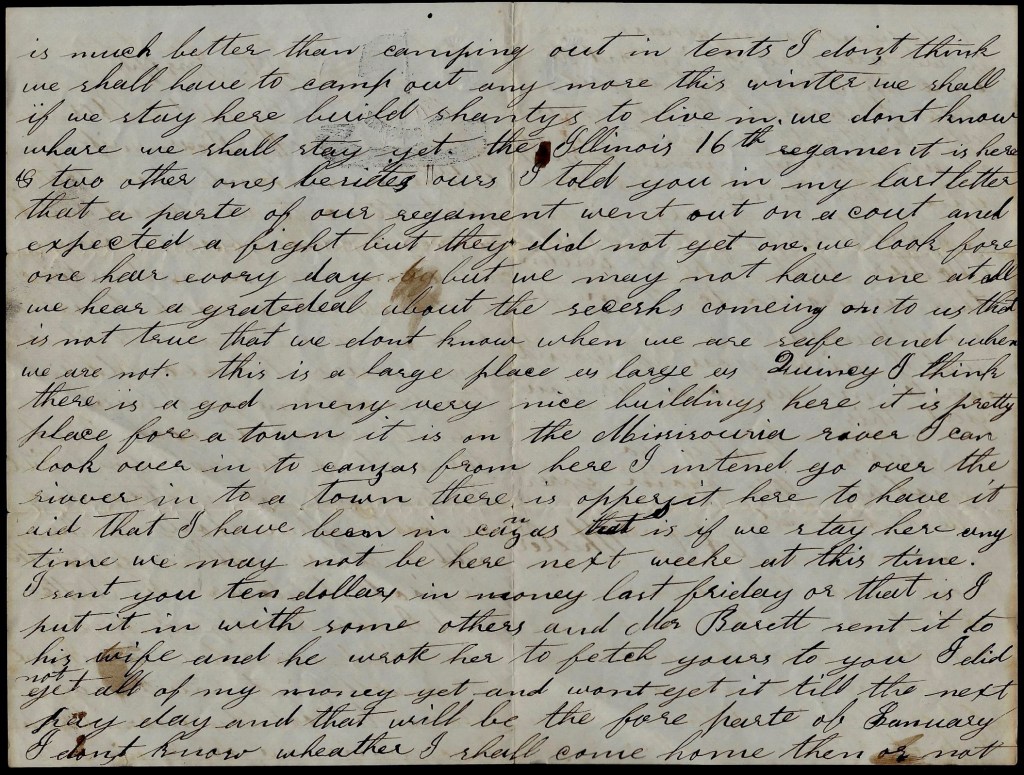 is much better than camping out in tents I dont think
we shall have to camp out any more this winter we shall
if we stay here build shantys to live in. we dont know
whare we shall stay yet. the Illinois 16th regament is here
& two other ones besides ours I told you in my last letter
that a parte of our regament went out on a cout and
expected a fight but they did not get one. we look fore
one hear evory day but we may not have one at all
we hear a gratedeal about the secesh comeing on to us that
is not true that we dont know when we are safe and when
we are not. this is a large place as large as Quincy I think
there is a god meny very nice buildings here it is pretty
place fore a town it is on the Missisouria river I can
look over in to canzas from here I intend go over the
rivver in to a town there is oppersit here to have it
aid that I have been in canzas that is if we stay here any
time we may not be here next weeke at this time.
I sent you ten dollars in money last friday or that is I
put it in with some others and Mr Barett sent it to
his wife and he wrote her to fetch yours to you I did
not
get all of my money yet and wont get it till the next
pay day and that will be the fore parte of January
I dont know wheather I shall come home then or not